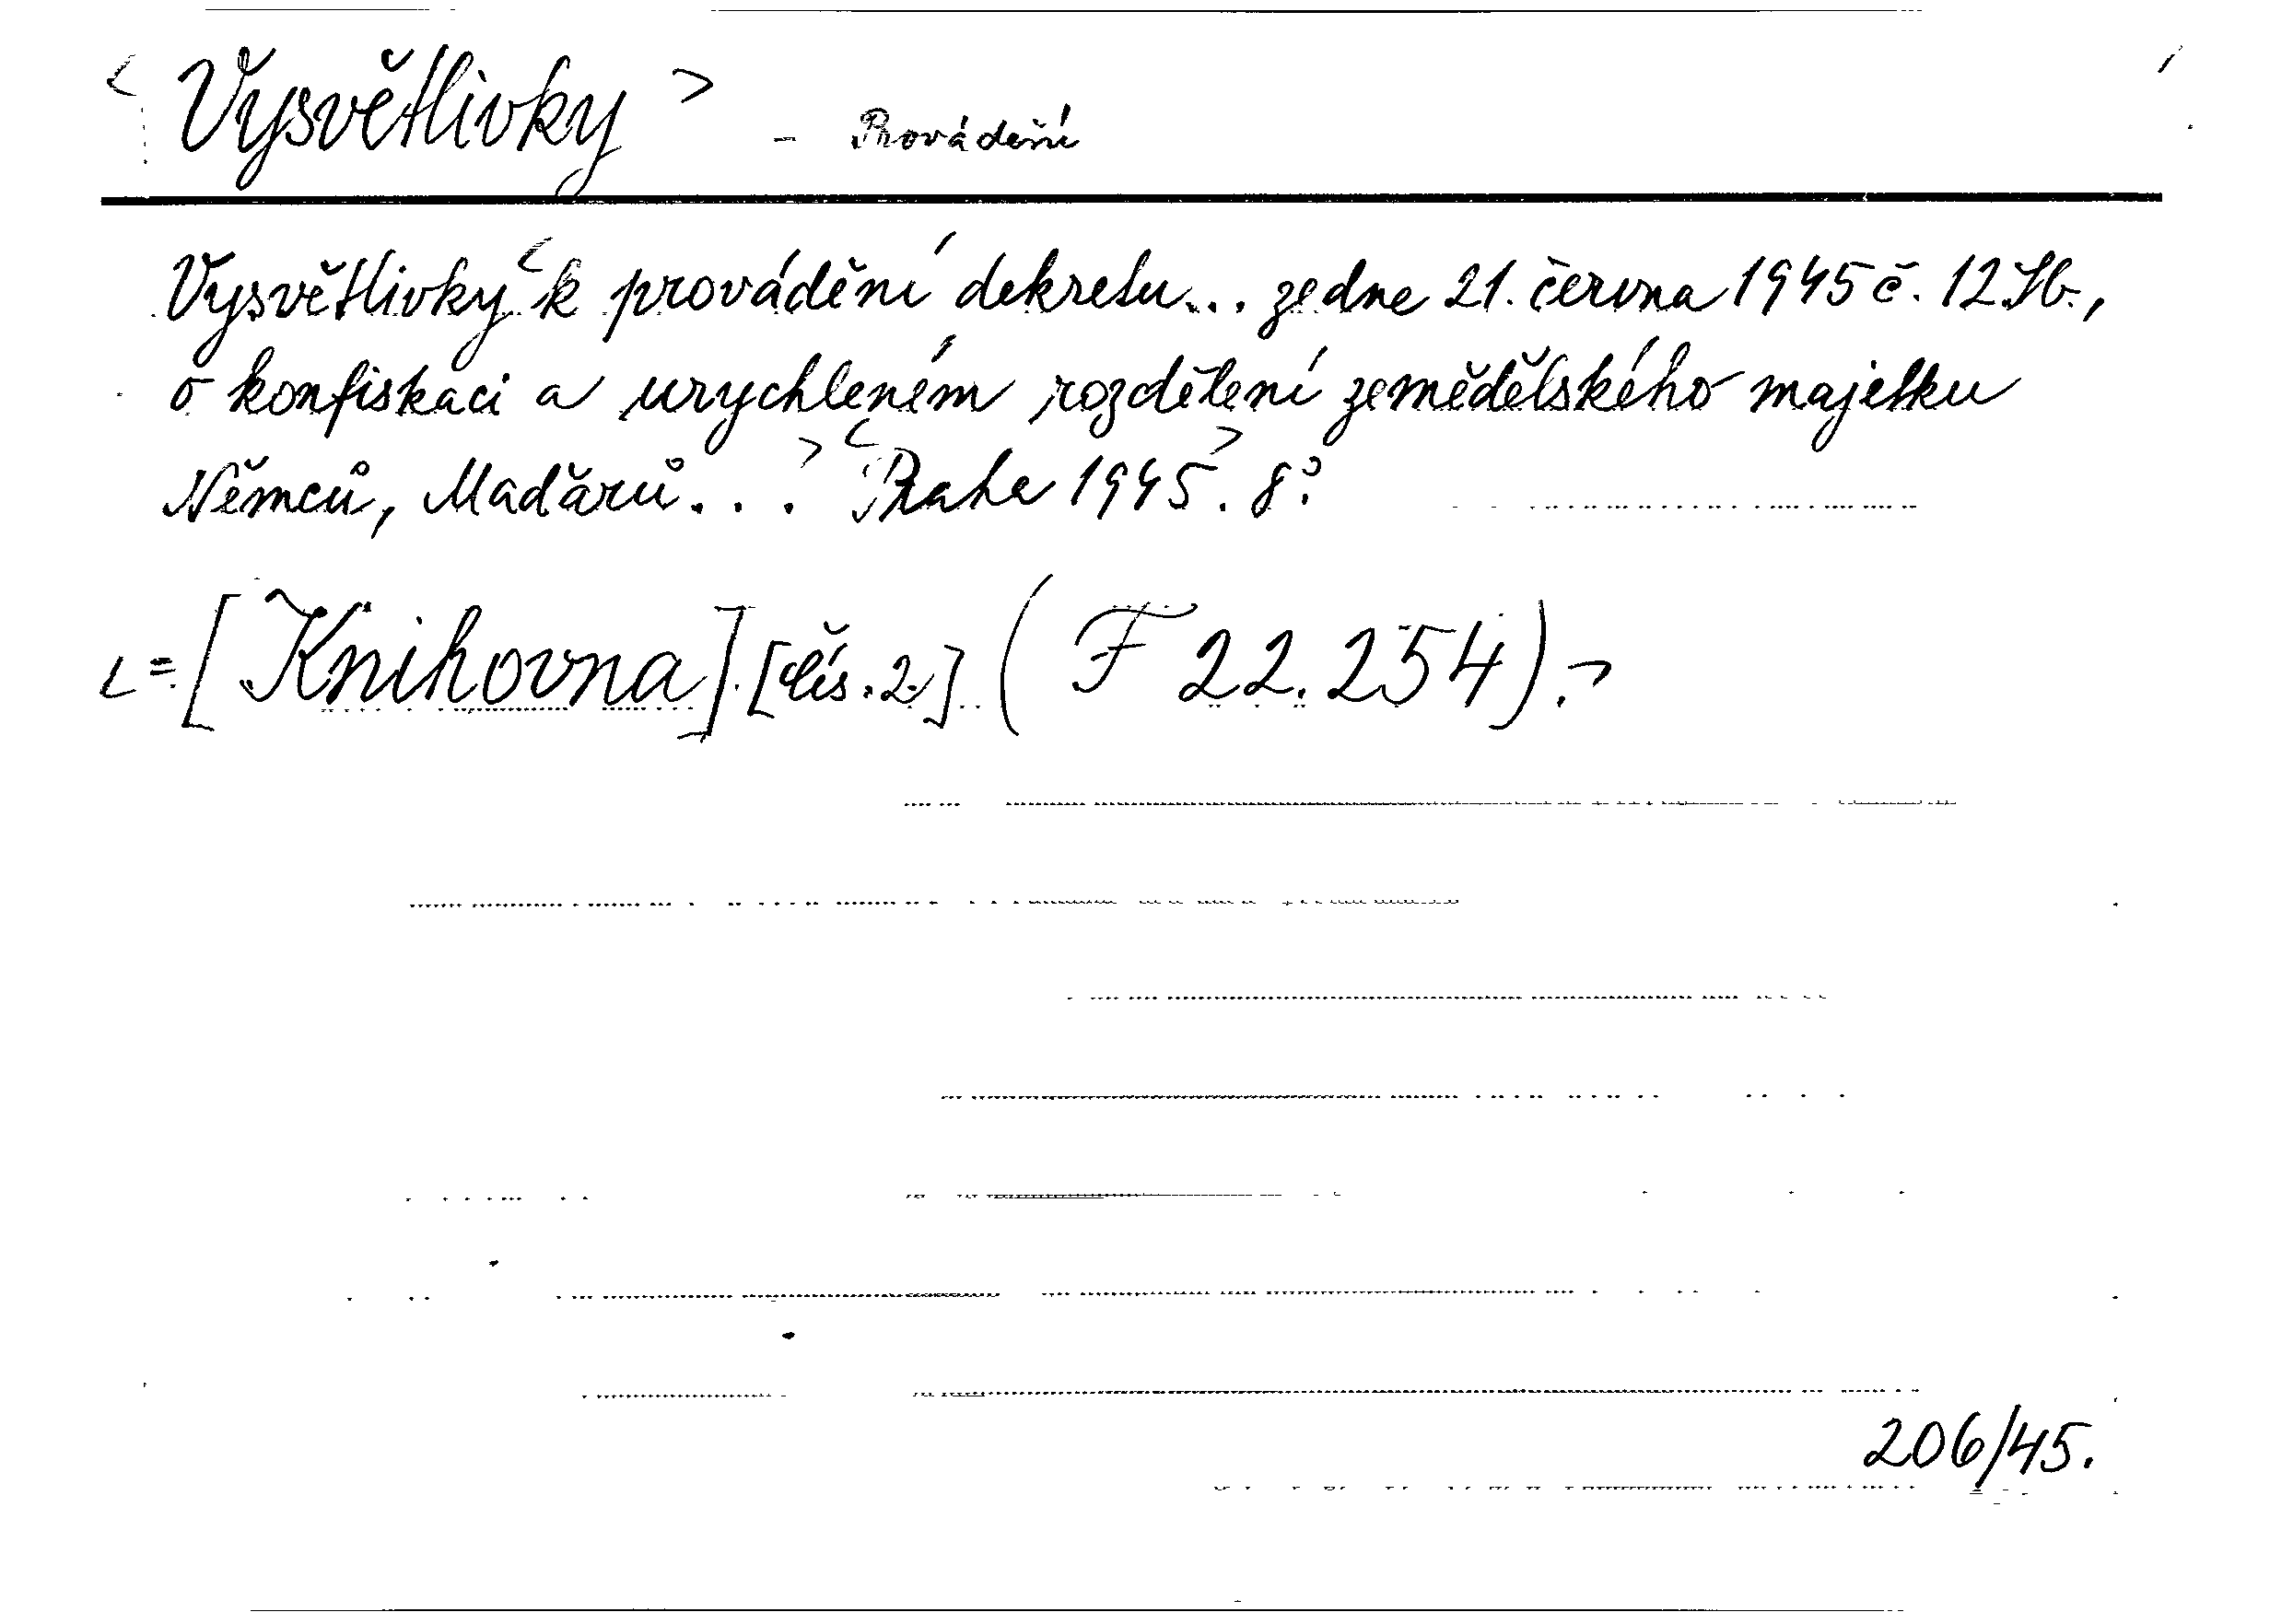 < Vysvětlivky > - Provádění
Vysvětlivky < k provádění dekretu... ze dne 21. června 1945 č. 12 Sb.,
o konfiskaci a urychleném rozdělení zemědělského majetku
Němců, Maďarů...> <Praha 1945>. 8°.
<=[Knihovna]. [čís. 2.]. (F 22.254).>
206/45.